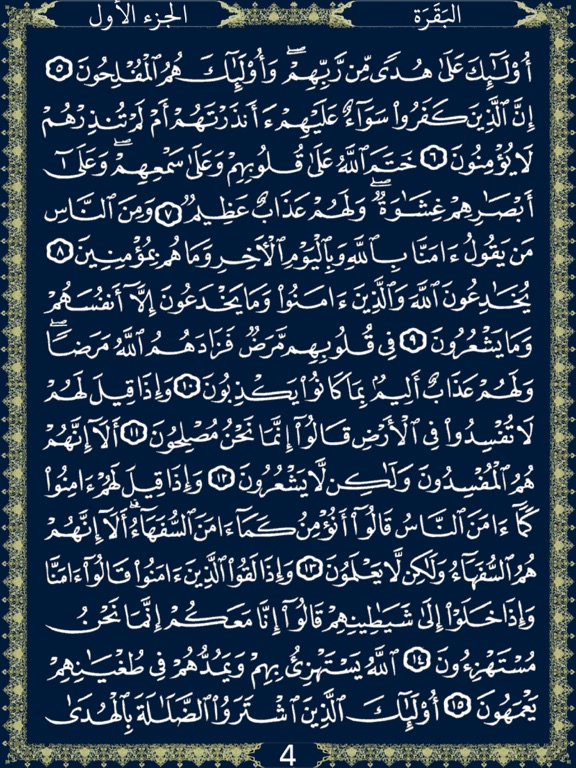 الجزء الأول
البَقَرَة
أُوْلَـٰٓئِكَ عَلَىٰ هُدًى مِّن رَّبِّهِمْۖ وَأُوْلَـٰٓئِكَ هُمُ ٱلْمُفْلِحُونَ ٥
إِنَّ ٱلَّذِينَ كَفَرُوا۟ سَوَآءٌ عَلَيْهِمْ ءَأَنذَرْتَهُمْ أَمْ لَمْ تُنذِرْهُمْ
لَا يُؤْمِنُونَ ٦ خَتَمَ ٱللَّهُ عَلَىٰ قُلُوبِهِمْ وَعَلَىٰ سَمْعِهِمْۖ وَعَلَىٰٓ
أَبْصَـٰرِهِمْ غِشَـٰوَةٌۖ وَلَهُمْ عَذَابٌ عَظِيمٌ ٧ وَمِنَ ٱلنَّاسِ
مَن يَقُولُ ءَامَنَّا بِٱللَّهِ وَبِٱلْيَوْمِ ٱلْـَٔاخِرِ وَمَا هُم بِمُؤْمِنِينَ ٨
يُخَـٰدِعُونَ ٱللَّهَ وَٱلَّذِينَ ءَامَنُوا۟ وَمَا يَخْدَعُونَ إِلَّآ أَنفُسَهُمْ
وَمَا يَشْعُرُونَ ٩ فِى قُلُوبِهِم مَّرَضٌ فَزَادَهُمُ ٱللَّهُ مَرَضًاۖ
وَلَهُمْ عَذَابٌ أَلِيمٌۢ بِمَا كَانُوا۟ يَكْذِبُونَ ١٠ وَإِذَا قِيلَ لَهُمْ
لَا تُفْسِدُوا۟ فِى ٱلْأَرْضِ قَالُوٓا۟ إِنَّمَا نَحْنُ مُصْلِحُونَ ١١ أَلَآ إِنَّهُمْ
هُمُ ٱلْمُفْسِدُونَ وَلَـٰكِن لَّا يَشْعُرُونَ ١٢ وَإِذَا قِيلَ لَهُمْ ءَامِنُوا۟
كَمَآ ءَامَنَ ٱلنَّاسُ قَالُوٓا۟ أَنُؤْمِنُ كَمَآ ءَامَنَ ٱلسُّفَهَآءُۗ أَلَآ إِنَّهُمْ
هُمُ ٱلسُّفَهَآءُ وَلَـٰكِن لَّا يَعْلَمُونَ ١٣ وَإِذَا لَقُوا۟ ٱلَّذِينَ ءَامَنُوا۟ قَالُوٓا۟ ءَامَنَّا
وَإِذَا خَلَوْا۟ إِلَىٰ شَيَـٰطِينِهِمْ قَالُوٓا۟ إِنَّا مَعَكُمْ إِنَّمَا نَحْنُ
مُسْتَهْزِءُونَ ١٤ ٱللَّهُ يَسْتَهْزِئُ بِهِمْ وَيَمُدُّهُمْ فِى طُغْيَـٰنِهِمْ
يَعْمَهُونَ ١٥ أُوْلَـٰٓئِكَ ٱلَّذِينَ ٱشْتَرَوُا۟ ٱلضَّلَـٰلَةَ بِٱلْهُدَىٰ
4